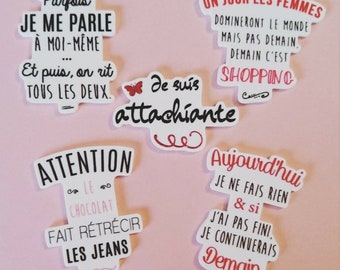 Parfois
JE ME PARLE
À MOI-MÊME
...
Et puis, on rit
TOUS LES DEUX.
UN JOUR LES FEMMES
DOMINERONT LE MONDE
MAIS PAS DEMAIN
DEMAIN C'EST
SHOPPING
Je suis
attachiante
ATTENTION
LE
CHOCOLAT
FAIT RÉTRÉCIR
LES JEANS
Aujourd'hui
JE NE FAIS RIEN
& si
J'AI PAS FINI,
JE CONTINUERAIS
Demain